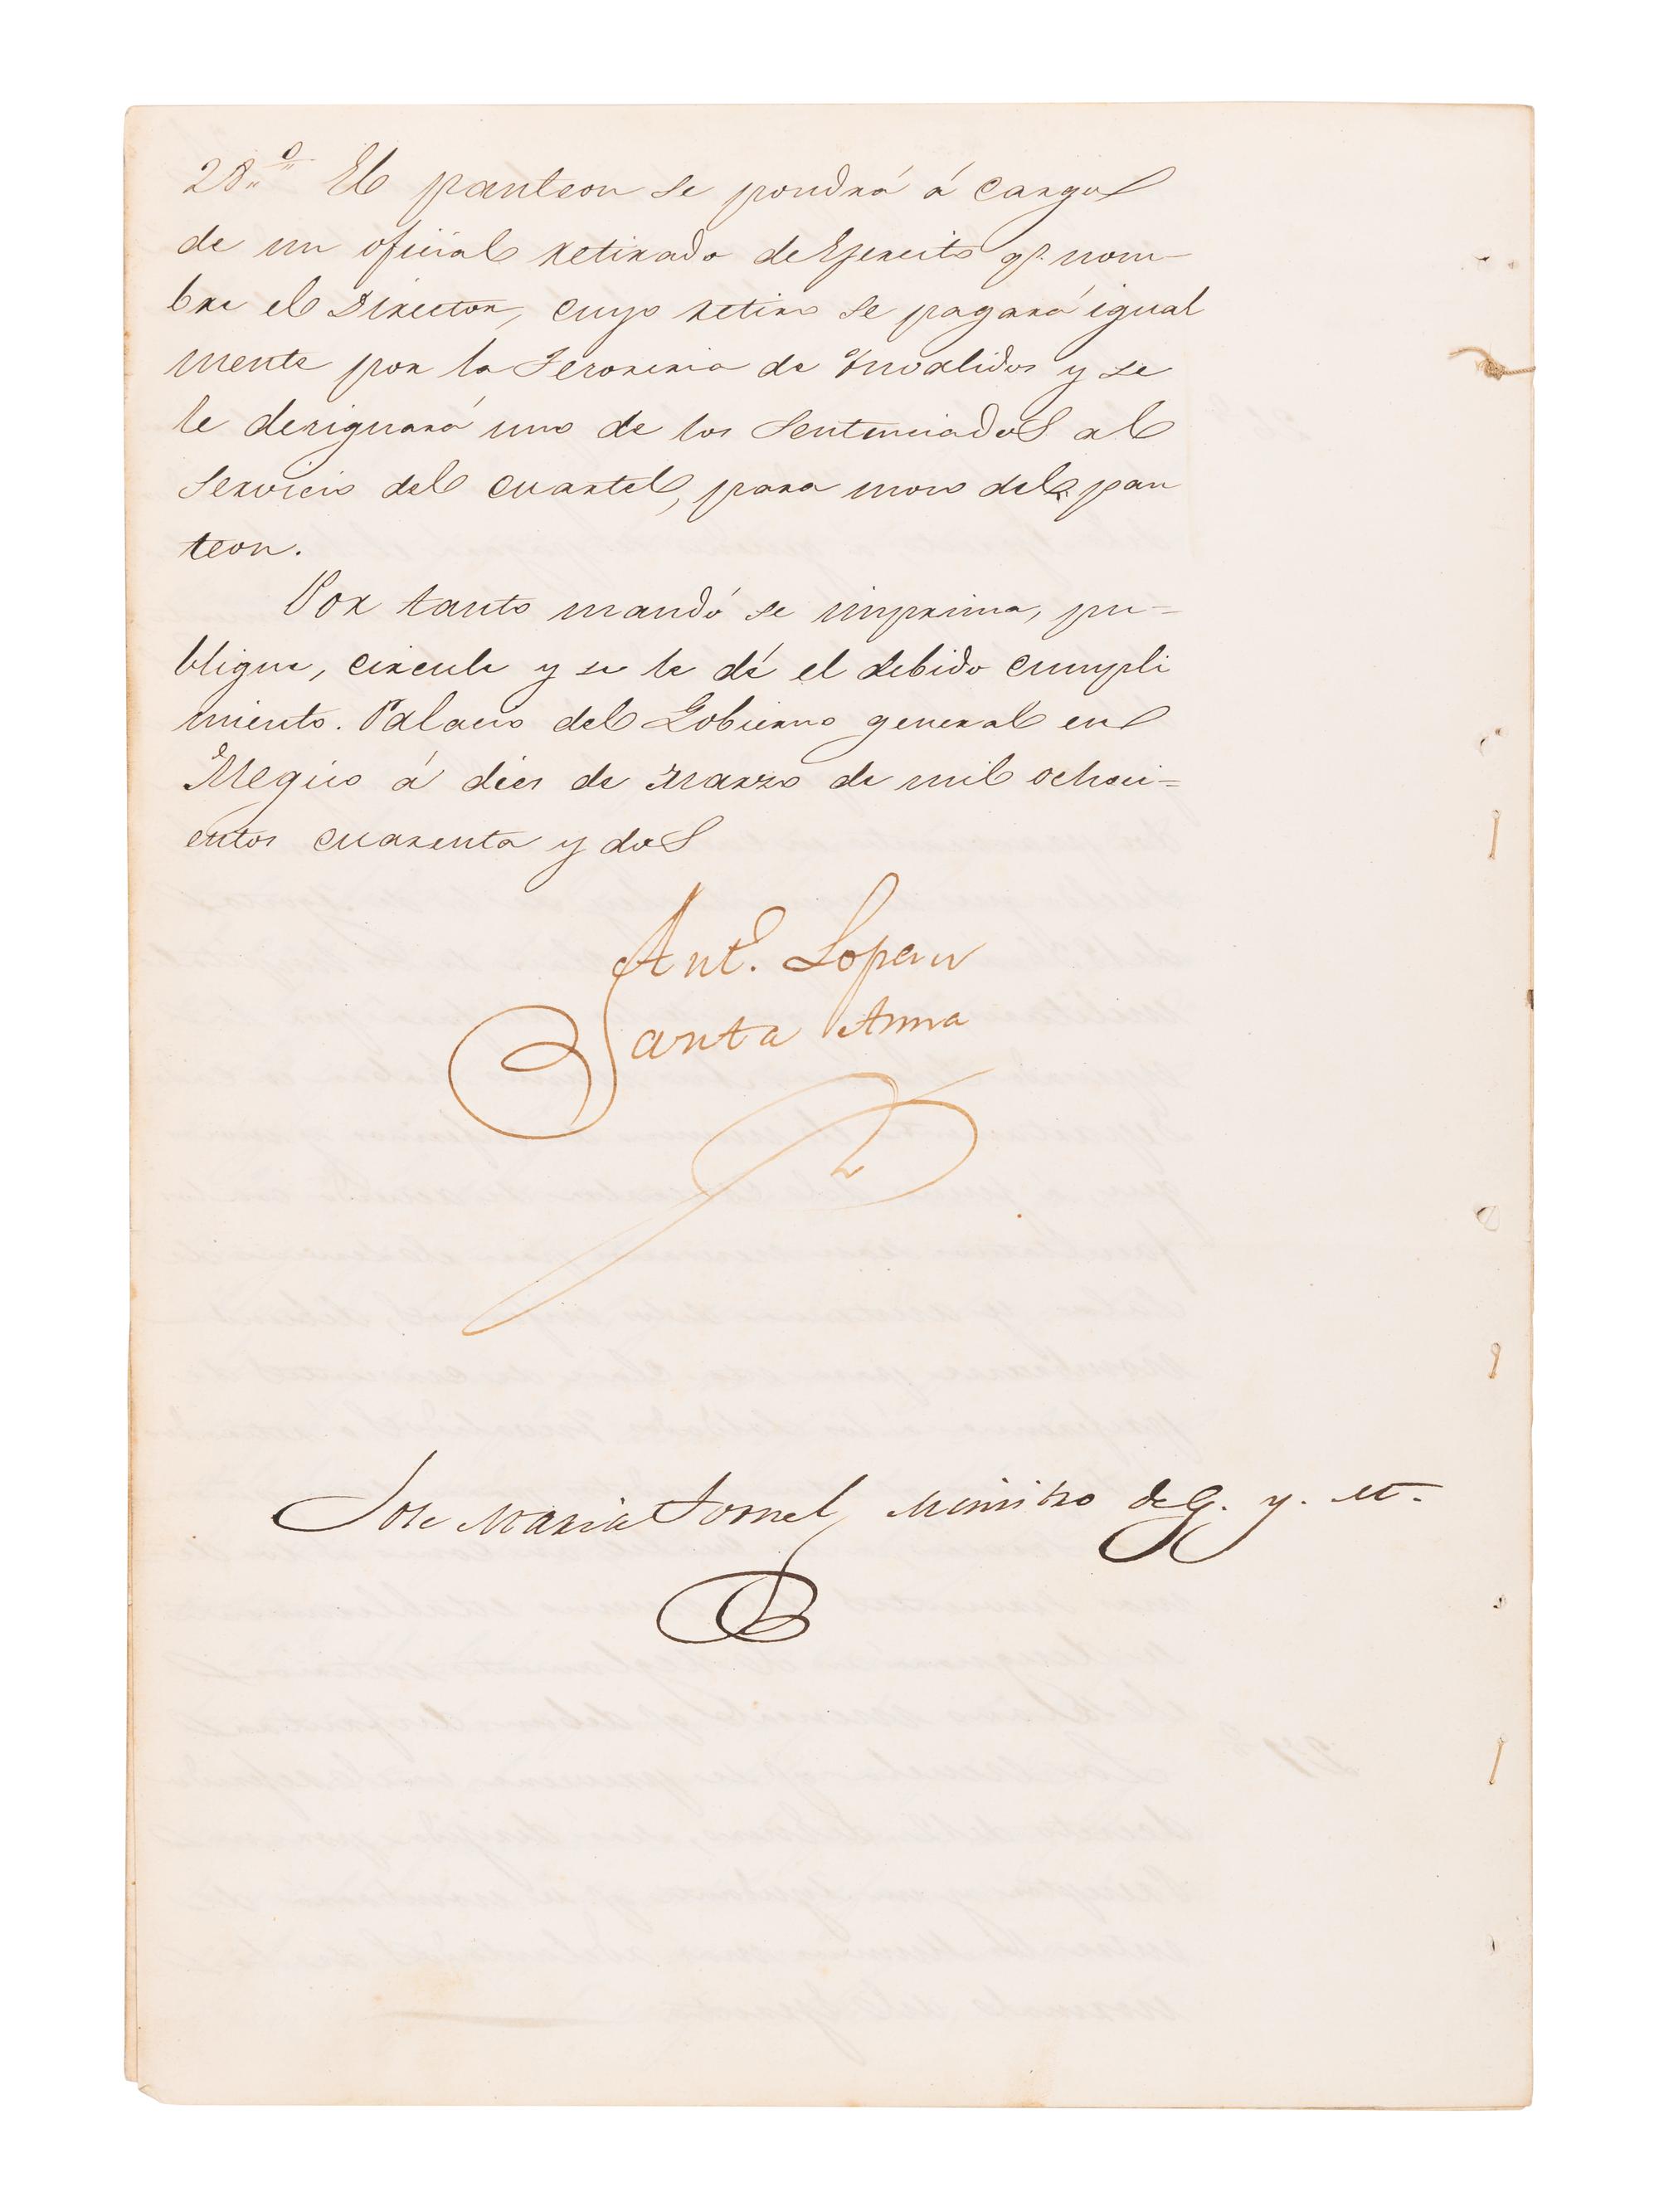 28.º El panteon se pondrá á cargo
de un oficial retirado de Ejercito qe. nom-
bre el Director, cuyo retiro se pagará igual
mente por la Tesoreria de Invalidos y se
le designará uno de los Sentenciados al
servicio del cuartel, para moso del pan
teon.
Por tanto mandó se imprima, pu=
blique, circule y se le dé el debido cumpli
miento. Palacio del Gobierno general en
Megico á dies de Marzo de mil ochoci=
entos cuarenta y dos
Anto. Lopez
Santa Anna
Jose Maria Tornel, Ministro de G. y. M.